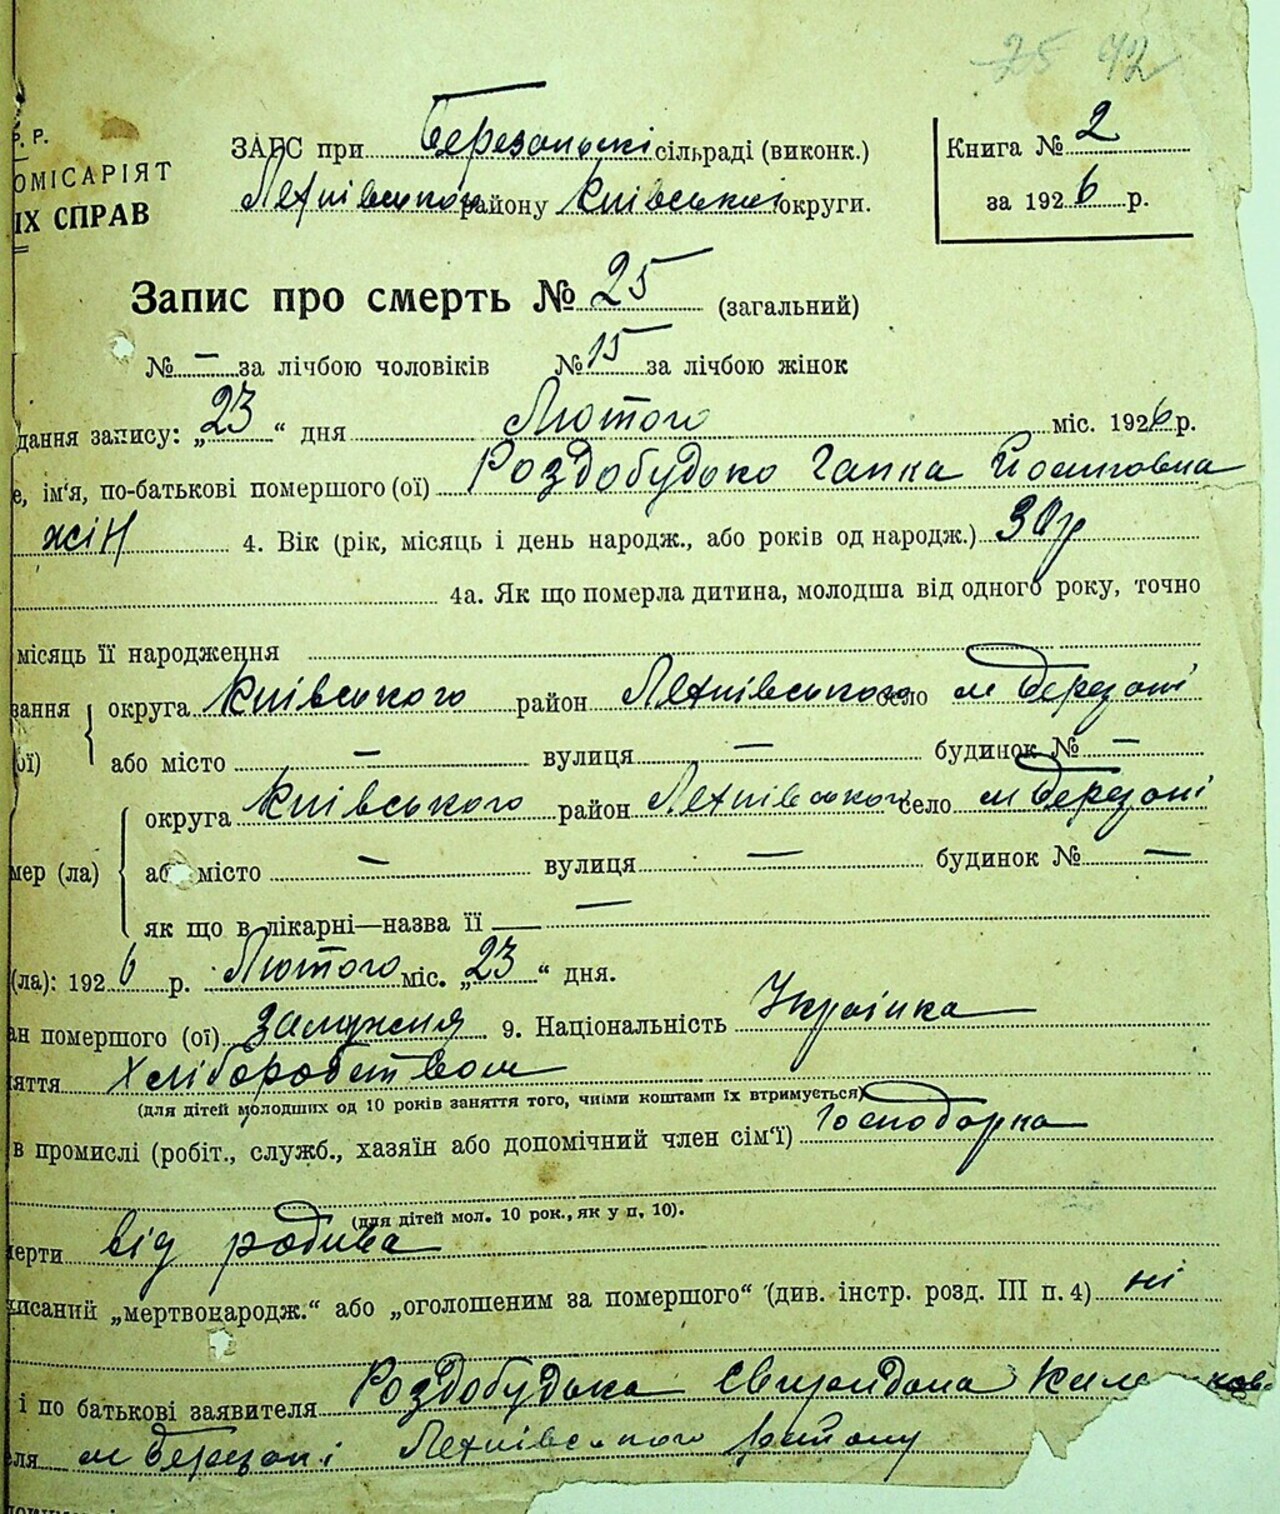 25 42
Р. Р.
ОМІСАРІЯТ
ІХ СПРАВ
ЗАГС при Березанські сільраді (виконк.)
району Київської округи.
Книга № 2
за 1926 р.
Запис про смерть № 25 (загальний)
№ — за лічбою чоловіків № 15 за лічбою жінок
дання запису: „23“ дня Лютого міс. 1926 р.
е, ім'я, по-батькові помершого (ої) Роздобудько Гапка Йосиповна
жін 4. Вік (рік, місяць і день народж., або років од народж.) 30 р
4а. Як що померла дитина, молодша від одного року, точно
місяць її народження
вання округа Київського район село м Березані
ої) або місто — вулиця — будинок № —
округа Київського район село м Березані
мер (ла) або місто — вулиця — будинок № —
як що в лікарні—назва її —
(ла): 1926 р. Лютого міс. „23“ дня.
ан помершого (ої) замужня 9. Національність Українка
яття Хліборобством
(для дітей молодших од 10 років заняття того, чиїми коштами їх втримується)
в промислі (робіт., служб., хазяїн або допомічний член сім'ї) Господарка
(для дітей мол. 10 рок., як у п. 10).
мерти від родива
писаний „мертвонародж.“ або „оголошеним за помершого“ (див. інстр. розд. III п. 4) ні
і по батькові заявителя Роздобудька
ля м Березані району